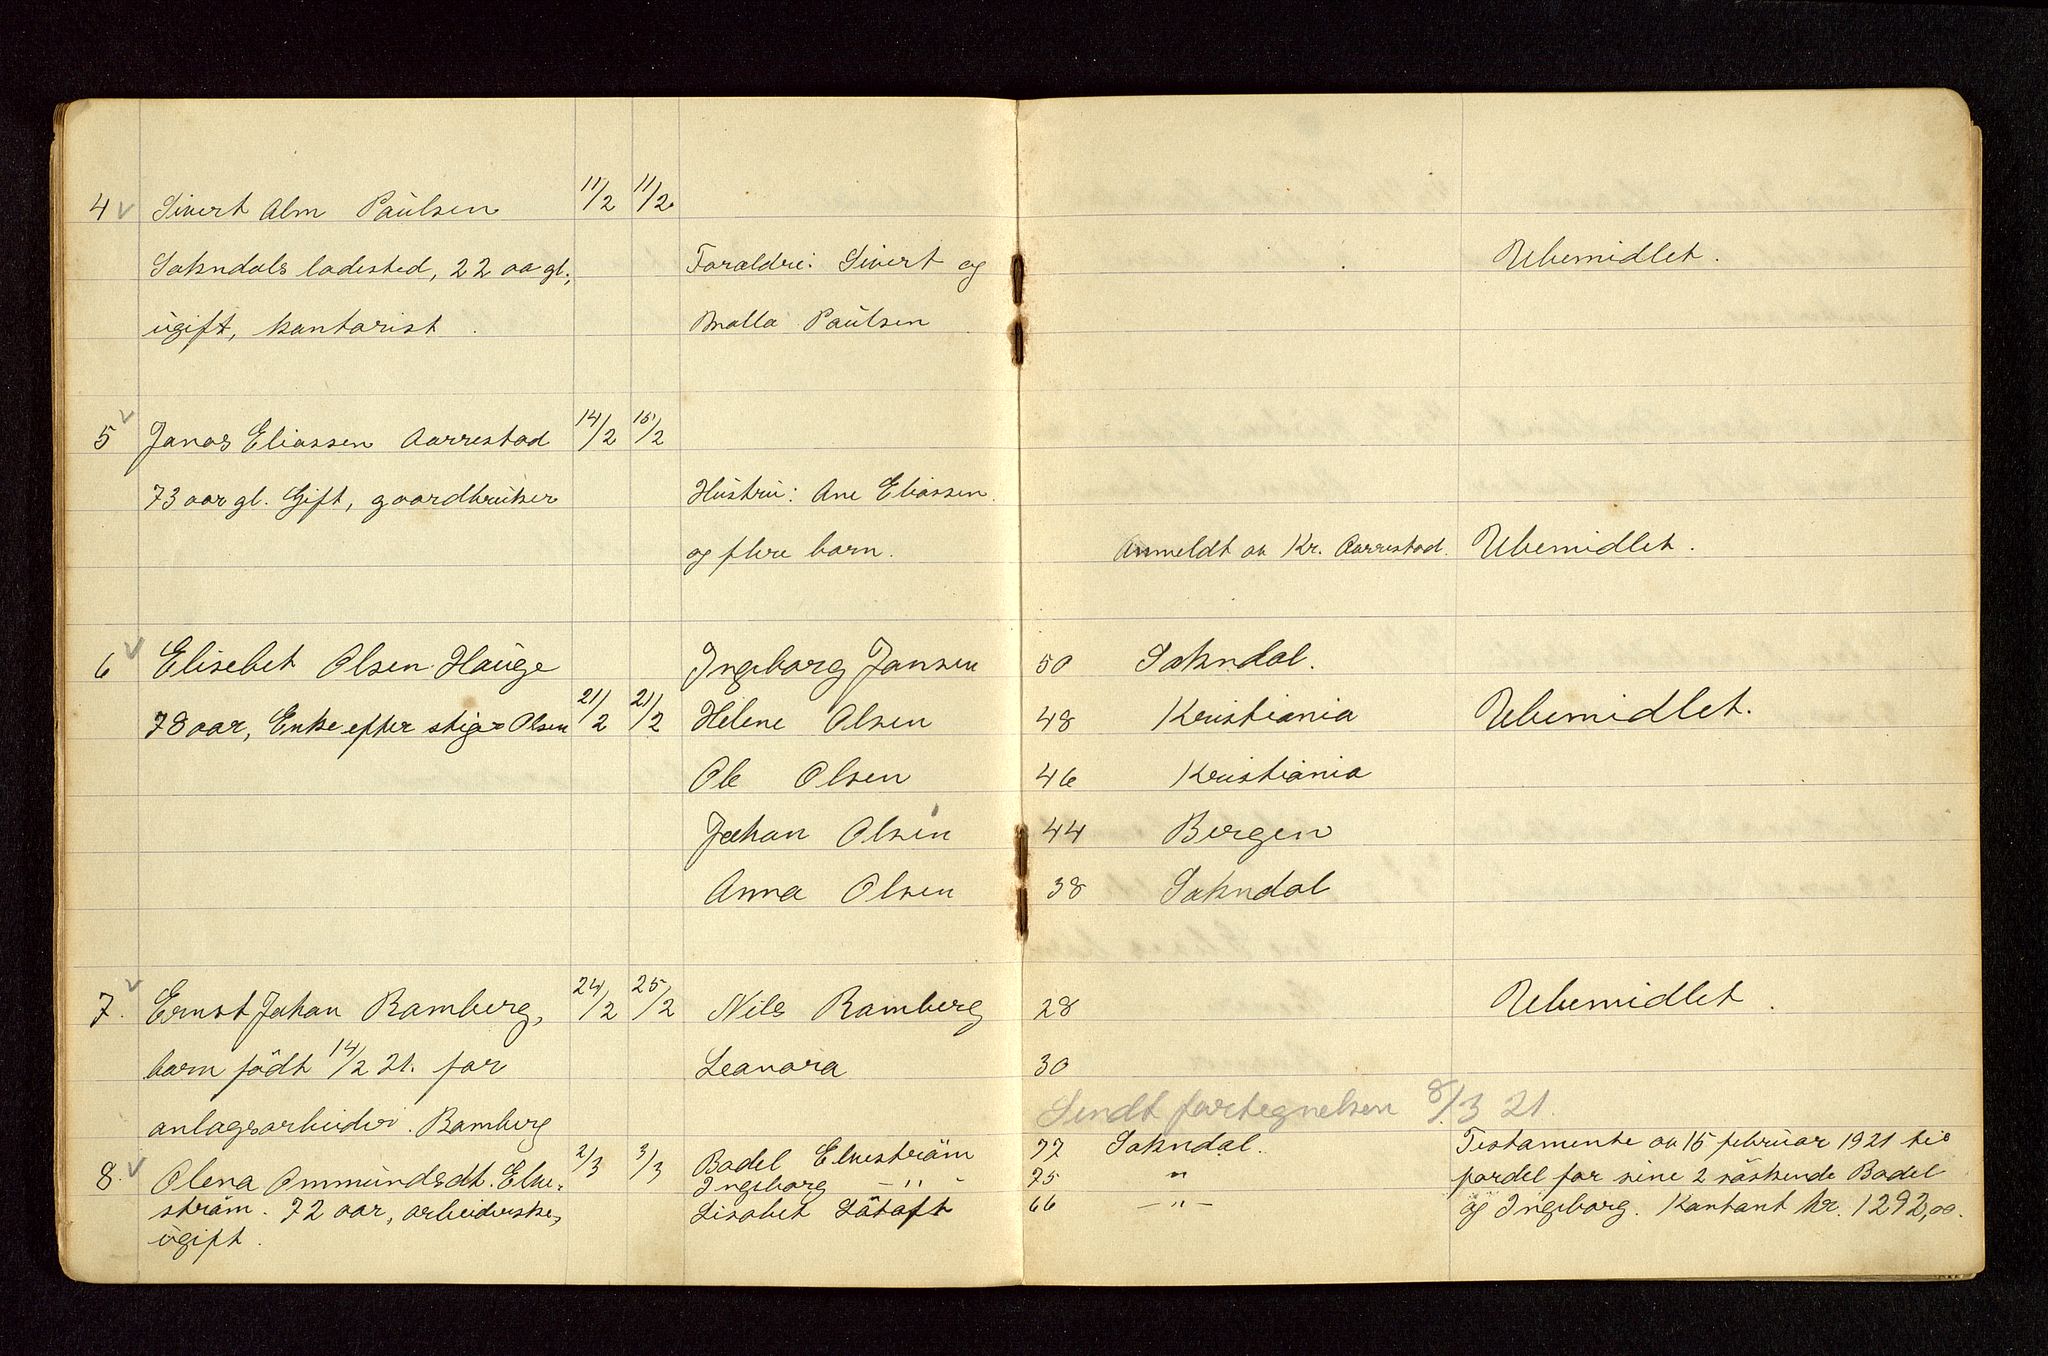 4 Sivert Alm Paulsen 11/2 11/2
Sokndals ladested, 22 aa gl., Foraldre: Sivert og Ubemidlet.
ugift, kontorist. Malla Paulsen.
5 Jonas Eliassen Aarrestad 14/2 15/2
73 aar gl. Gift, gaardbruker Hustru: Ane Eliassen.
og flere barn. Anmeldt av Kr. Aarrestad. Ubemidlet.
6 Elisebet Olsen Hauge Ingeborg Jonsen 50 Sokndal.
78 aar, Enke efter stiger Olsen 21/2 21/2 Helene Olsen 48 Kristiania Ubemidlet.
Ole Olsen 46 Kristiania
Johan Olsen 44 Bergen
Anna Olsen 38 Sokndal
7. Ernst Johan Ramberg, 24/2 25/2 Nils Ramberg 28 Ubemidlet.
barn födt 14/2 21. for Leonora 30
anlagsarbeider. Ramberg Sendt fortegnelsen 8/3 21.
8. Olena Ommundsdt. Elve- 2/3 3/3 Bodel Elveström 77 Sokndal. Testamente av 15 februar 1921 til
ström. 72 aar, arbeiderske, Ingeborg —„— 75 „ fordel for sine 2 söskende Bodel
ugift. Lisabet Låtoft 66 —„— og Ingeborg. Kontant kr. 1292,00.